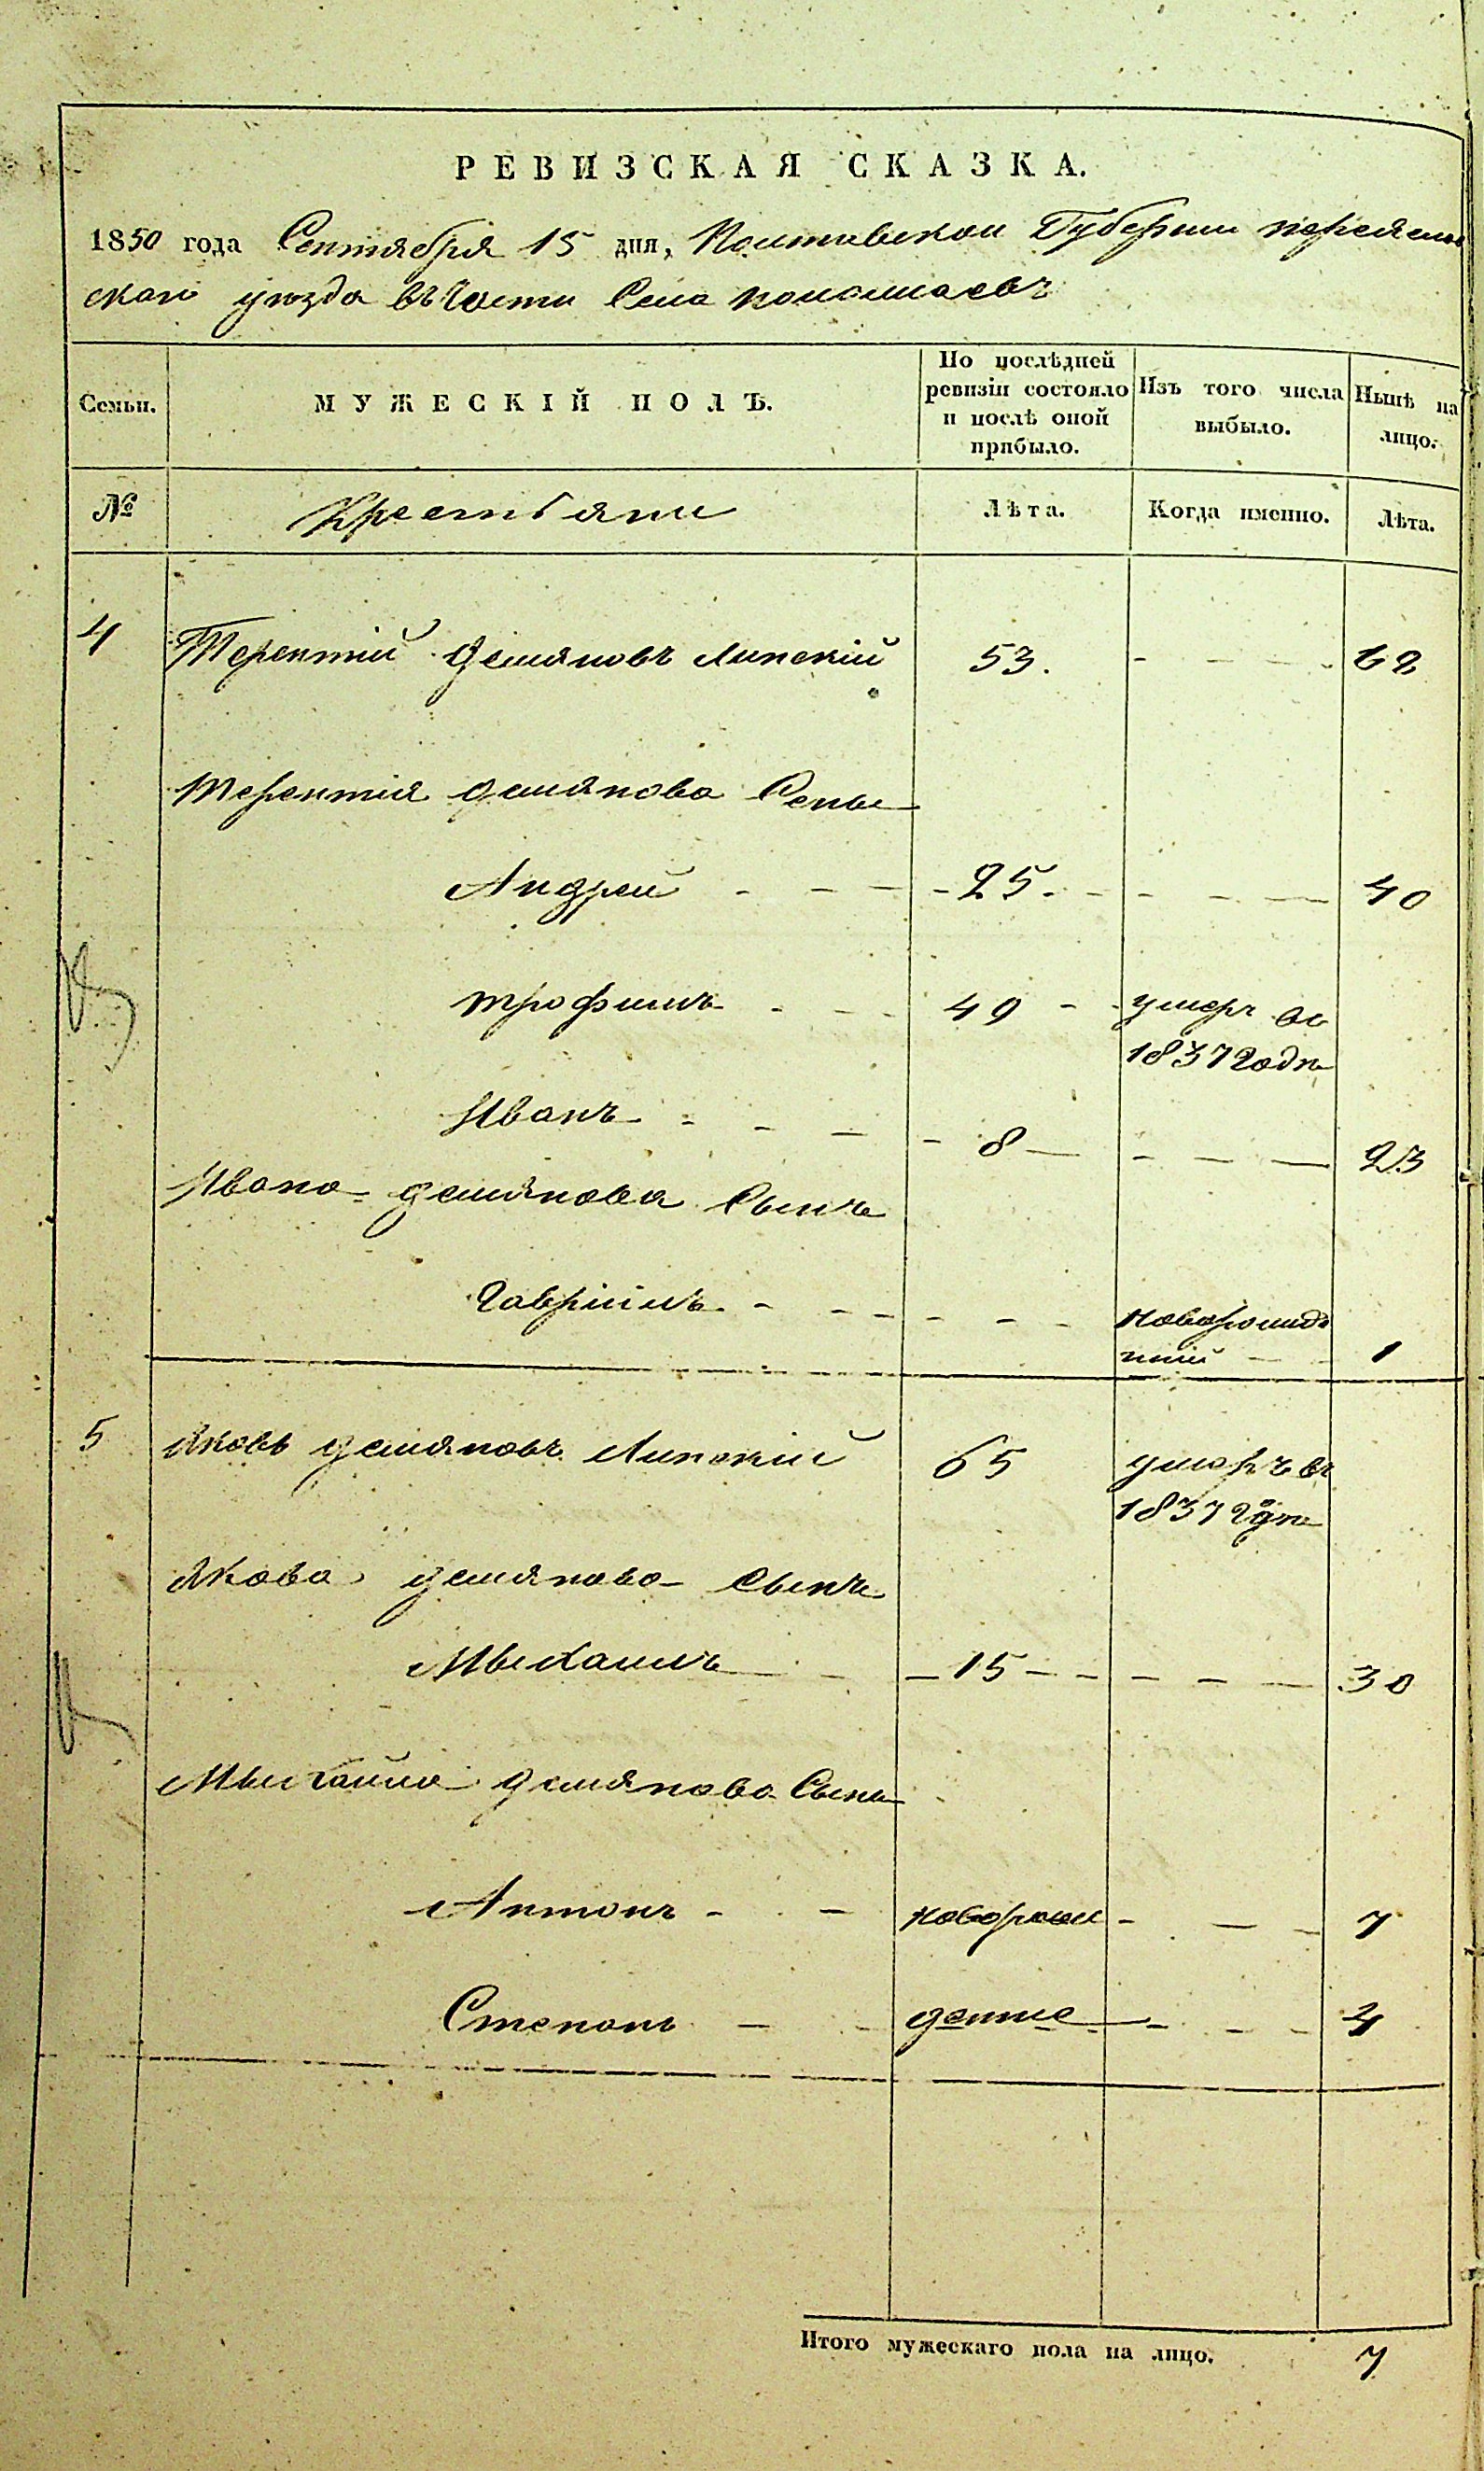 РЕВИЗСКАЯ СКАЗКА.
1850 года Сентября 15 дня, Полтавской Губернии переяслов
скаго уезда въ части Села
Семьи.
МУЖЕСКІЙ ПОЛЪ.
По послѣдней ревизіи состояло и послѣ оной прибыло.
Изъ того числа выбыло.
Нынѣ на лицо.
№
Крестьяни
Лѣта.
Когда именно.
Лѣта.
4 Терентій Демяновъ Липскій 53. 68
Терентія демянова Сены
Андрей 25. 40
трофимъ 49 умеръ во
1837 Годе
Иванъ 8 23
Ивана демянова Сынъ
Гавріилъ новорожде
ний 1
5 Яковъ демяновъ Липскій 65 умеръ въ
1837 Годе
Якова демянова сынъ
Мыхаилъ 15 30
Мыхайла демянова Сыны
Антонъ новорож 7
Степанъ денние 4
Итого мужескаго пола на лицо. 7